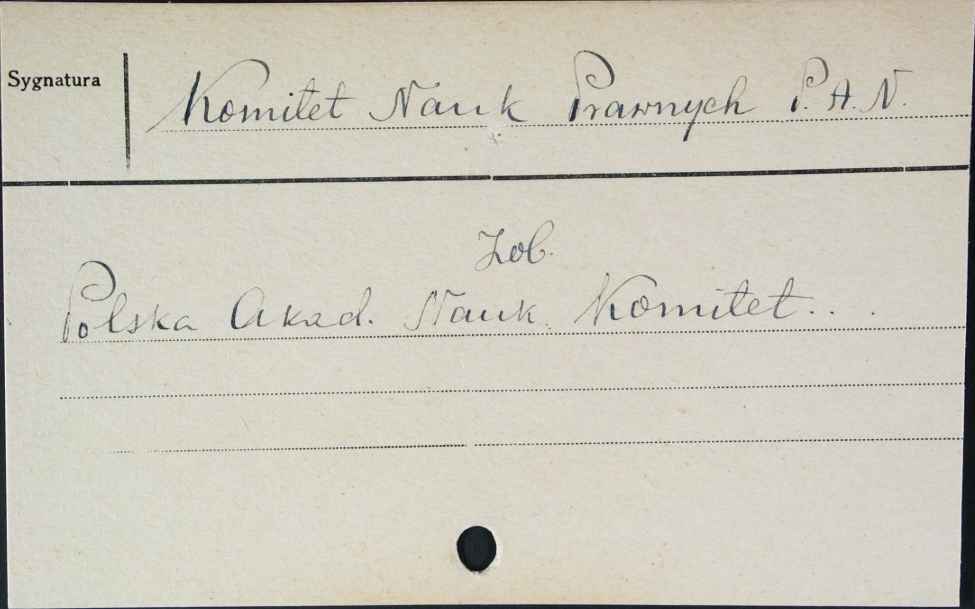 Sygnatura
Komitet Nauk Prawnych P.A.N.
Zob.
Polska Akad. Nauk. Komitet...